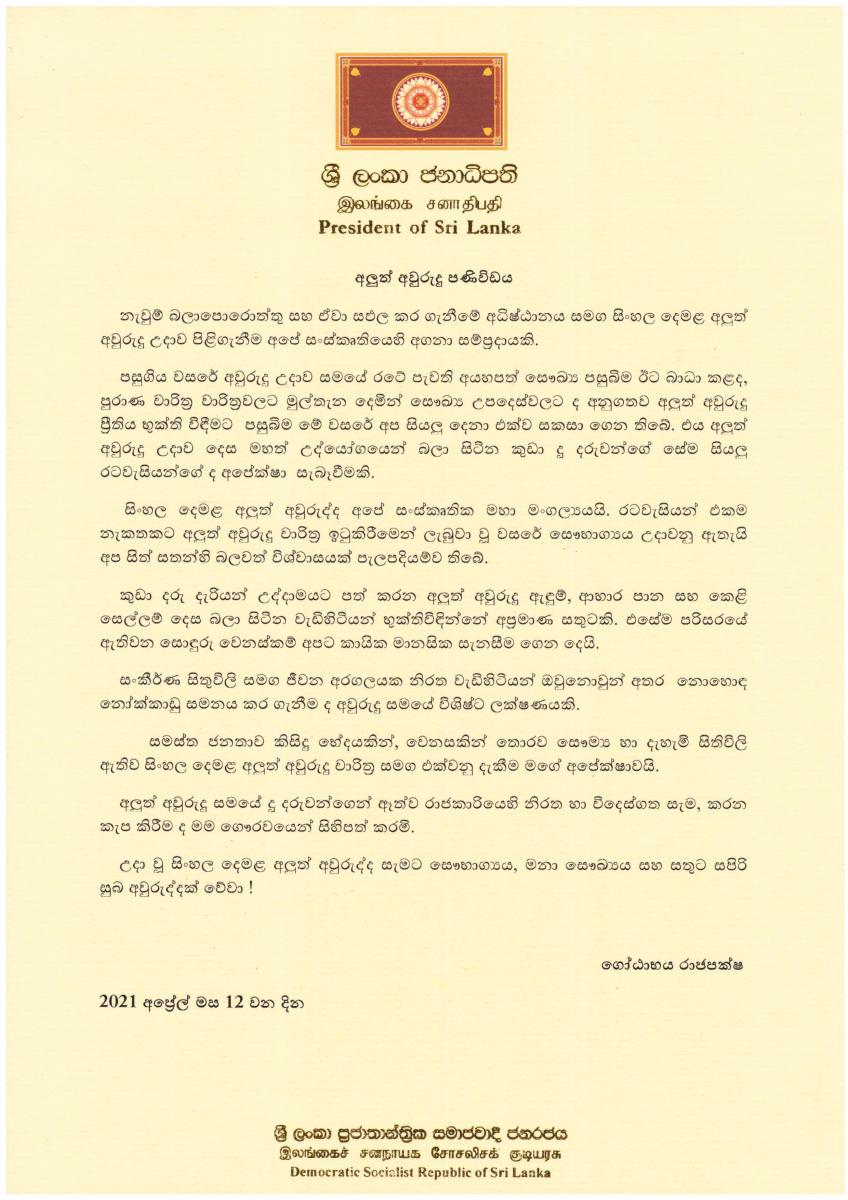 ශ්‍රී ලංකා ජනාධිපති
இலங்கை சனாதிபதி
President of Sri Lanka
අලුත් අවුරුදු පණිවිඩය
නැවුම් බලාපොරොත්තු සහ ඒවා සඵල කර ගැනීමේ අධිෂ්ඨානය සමග සිංහල දෙමළ අලුත්
අවුරුදු උදාව පිළිගැනීම අපේ සංස්කෘතියෙහි අගනා සම්ප්‍රදායකි.
පසුගිය වසරේ අවුරුදු උදාව සමයේ රටේ පැවති අයහපත් සෞඛ්‍ය පසුබිම ඊට බාධා කළද,
පුරාණ චාරිත්‍ර වාරිත්‍රවලට මුල්තැන දෙමින් සෞඛ්‍ය උපදෙස්වලට ද අනුගතව අලුත් අවුරුදු
ප්‍රීතිය භුක්ති විඳීමට පසුබිම මේ වසරේ අප සියලු දෙනා එක්ව සකසා ගෙන තිබේ. එය අලුත්
අවුරුදු උදාව දෙස මහත් උද්යෝගයෙන් බලා සිටින කුඩා දූ දරුවන්ගේ සේම සියලු
රටවැසියන්ගේ ද අපේක්ෂා සැබෑවීමකි.
සිංහල දෙමළ අලුත් අවුරුද්ද අපේ සංස්කෘතික මහා මංගල්‍යයයි. රටවැසියන් එකම
නැකතකට අලුත් අවුරුදු චාරිත්‍ර ඉටුකිරීමෙන් ලැබුවා වූ වසරේ සෞභාග්‍යය උදාවනු ඇතැයි
අප සිත් සතන්හි බලවත් විශ්වාසයක් පැලපදියම්ව තිබේ.
කුඩා දරු දැරියන් උද්දාමයට පත් කරන අලුත් අවුරුදු ඇඳුම්, ආහාර පාන සහ කෙළි
සෙල්ලම් දෙස බලා සිටින වැඩිහිටියන් භුක්තිවිඳින්නේ අප්‍රමාණ සතුටකි. එසේම පරිසරයේ
ඇතිවන සොඳුරු වෙනස්කම් අපට කායික මානසික සැනසීම ගෙන දෙයි.
සංකීර්ණ සිතුවිලි සමග ජීවන අරගලයක නිරත වැඩිහිටියන් ඔවුනොවුන් අතර නොහොඳ
නෝක්කාඩු සමනය කර ගැනීම ද අවුරුදු සමයේ විශිෂ්ට ලක්ෂණයකි.
සමස්ත ජනතාව කිසිදු භේදයකින්, වෙනසකින් තොරව සෞම්‍ය හා දැහැමි සිතිවිලි
ඇතිව සිංහල දෙමළ අලුත් අවුරුදු චාරිත්‍ර සමග එක්වනු දැකීම මගේ අපේක්ෂාවයි.
අලුත් අවුරුදු සමයේ දූ දරුවන්ගෙන් ඈත්ව රාජකාරියෙහි නිරත හා විදෙස්ගත සැම, කරන
කැප කිරීම ද මම ගෞරවයෙන් සිහිපත් කරමි.
උදා වූ සිංහල දෙමළ අලුත් අවුරුද්ද සැමට සෞභාග්‍යය, මනා සෞඛ්‍යය සහ සතුට සපිරි
සුබ අවුරුද්දක් වේවා !
ගෝඨාභය රාජපක්ෂ
2021 අප්‍රේල් මස 12 වන දින
ශ්‍රී ලංකා ප්‍රජාතාන්ත්‍රික සමාජවාදී ජනරජය
இலங்கைச் சனநாயக சோசலிசக் குடியரசு
Democratic Socialist Republic of Sri Lanka